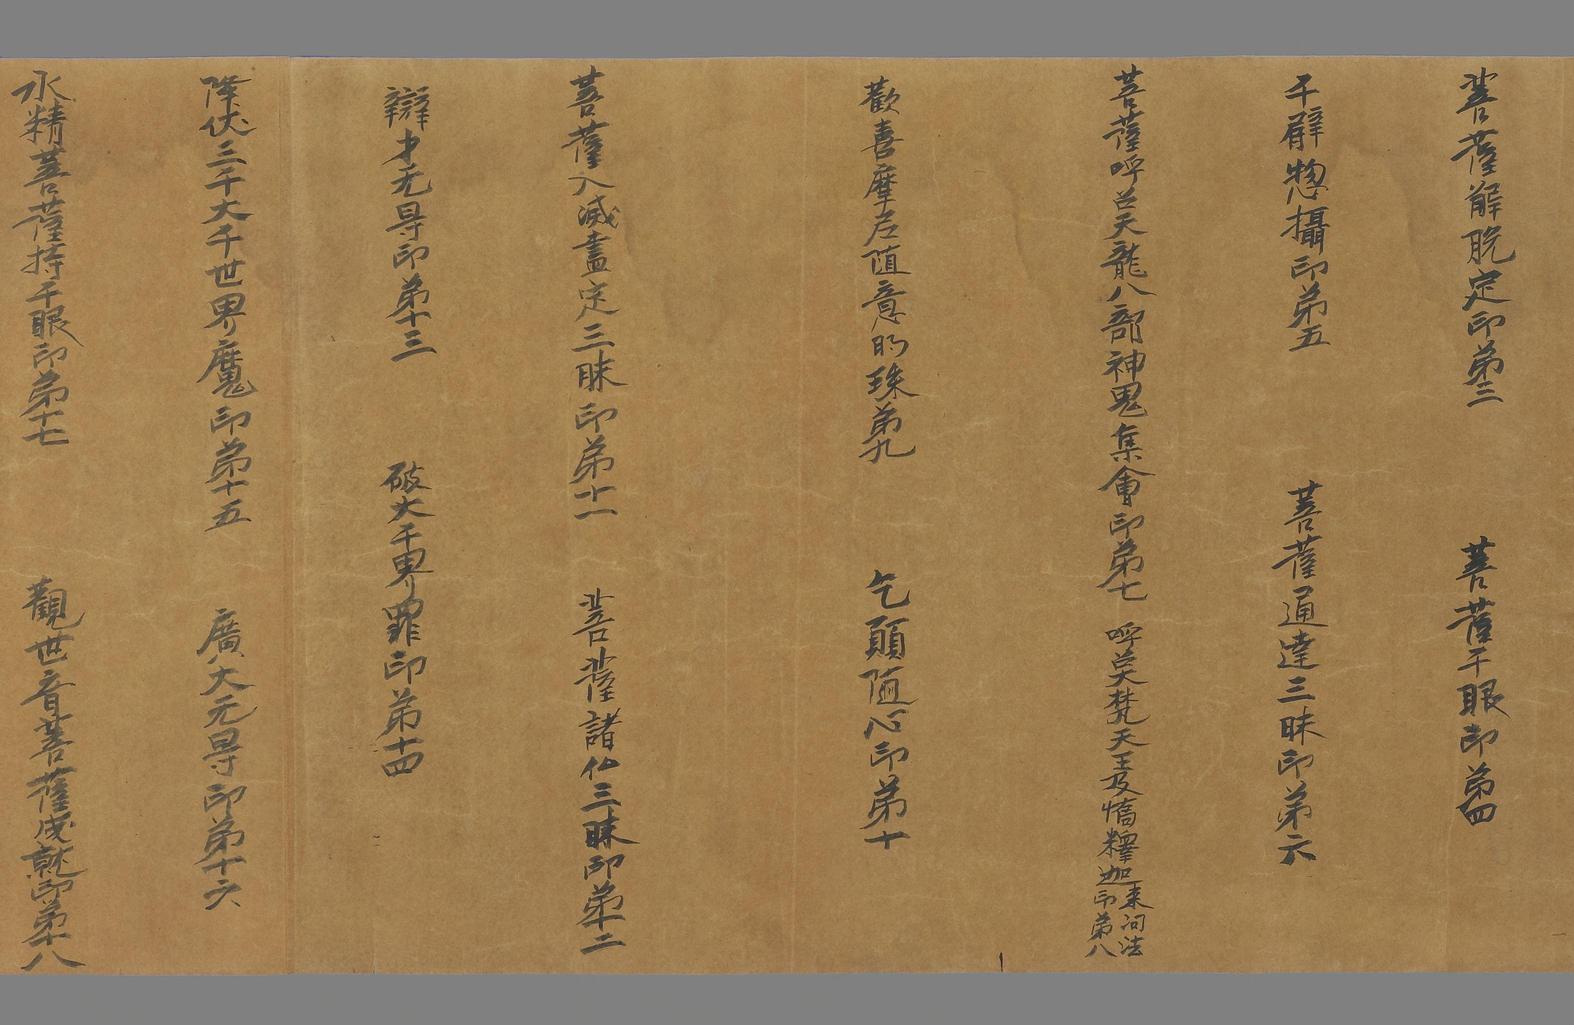 菩薩解脱定印苐三　菩薩千眼印苐四
千臂惣攝印苐五　菩薩通達三昧印苐六
菩薩呼召天龍八部神鬼集會印苐七　呼召梵天王及憍釋迦来問法印苐八
歡喜摩尼随意明珠苐九　乞願随心印苐十
菩薩入滅盡定三昧印苐十一　菩薩諸仏三昧印苐十二
辯才无㝵印苐十三　破大千界罪印苐十四
降伏三千大千世界魔印苐十五　廣大无㝵印苐十六
水精菩薩持千眼印苐十七　觀世音菩薩成就印苐十八